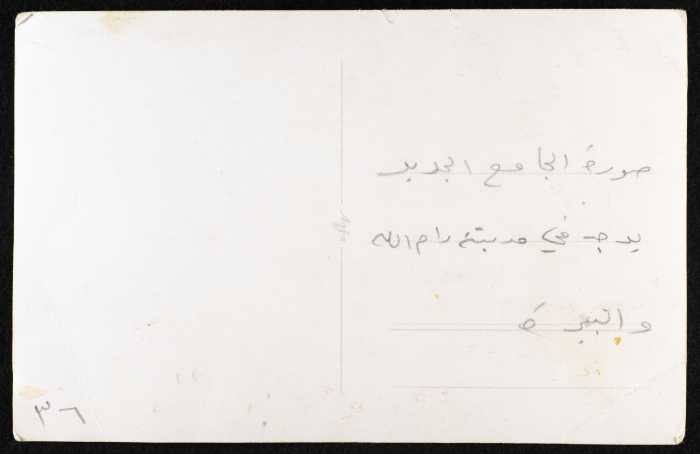 صورة الجامع الجديد
يوجد في مدينة رام الله
والبيرة
٣٦